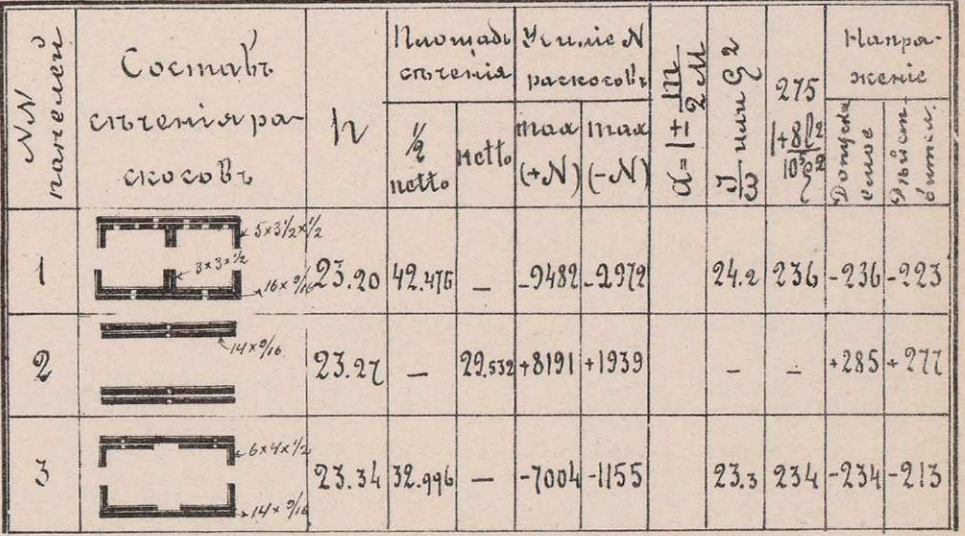 NN панелей
Составъ
сѣченія ра-
скосовъ
h
Площадь
сѣченія
½
netto
netto
Усиліе N
раскосовъ
max
(+N)
max
(-N)
α = 1 + m/2M
J/ω или ρ²
275
1+8l²
10⁵ρ²
Напря-
женіе
Допуска
емое
Дѣйст-
вител.
1
5×3½×½
3×3×½
16×9/16
23.20 42.476 — -9482 -2972 24.2 236 -236 -223
2
14×9/16
23.27 — 29.532 +8191 +1939 — — +285 +277
3
6×4×½
14×9/16
23.34 32.996 — -7004 -1155 23.3 234 -234 -213